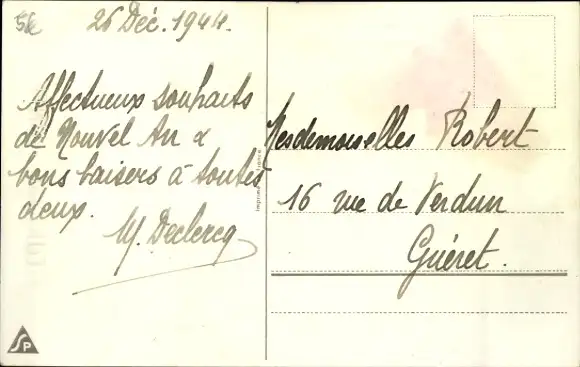 26 Déc. 1944.
Affectueux souhaits
de Nouvel An &
bons baisers à toutes
deux.
M. Declercq
Mesdemoiselles Robert
16 rue de Verdun
Guéret.
SP